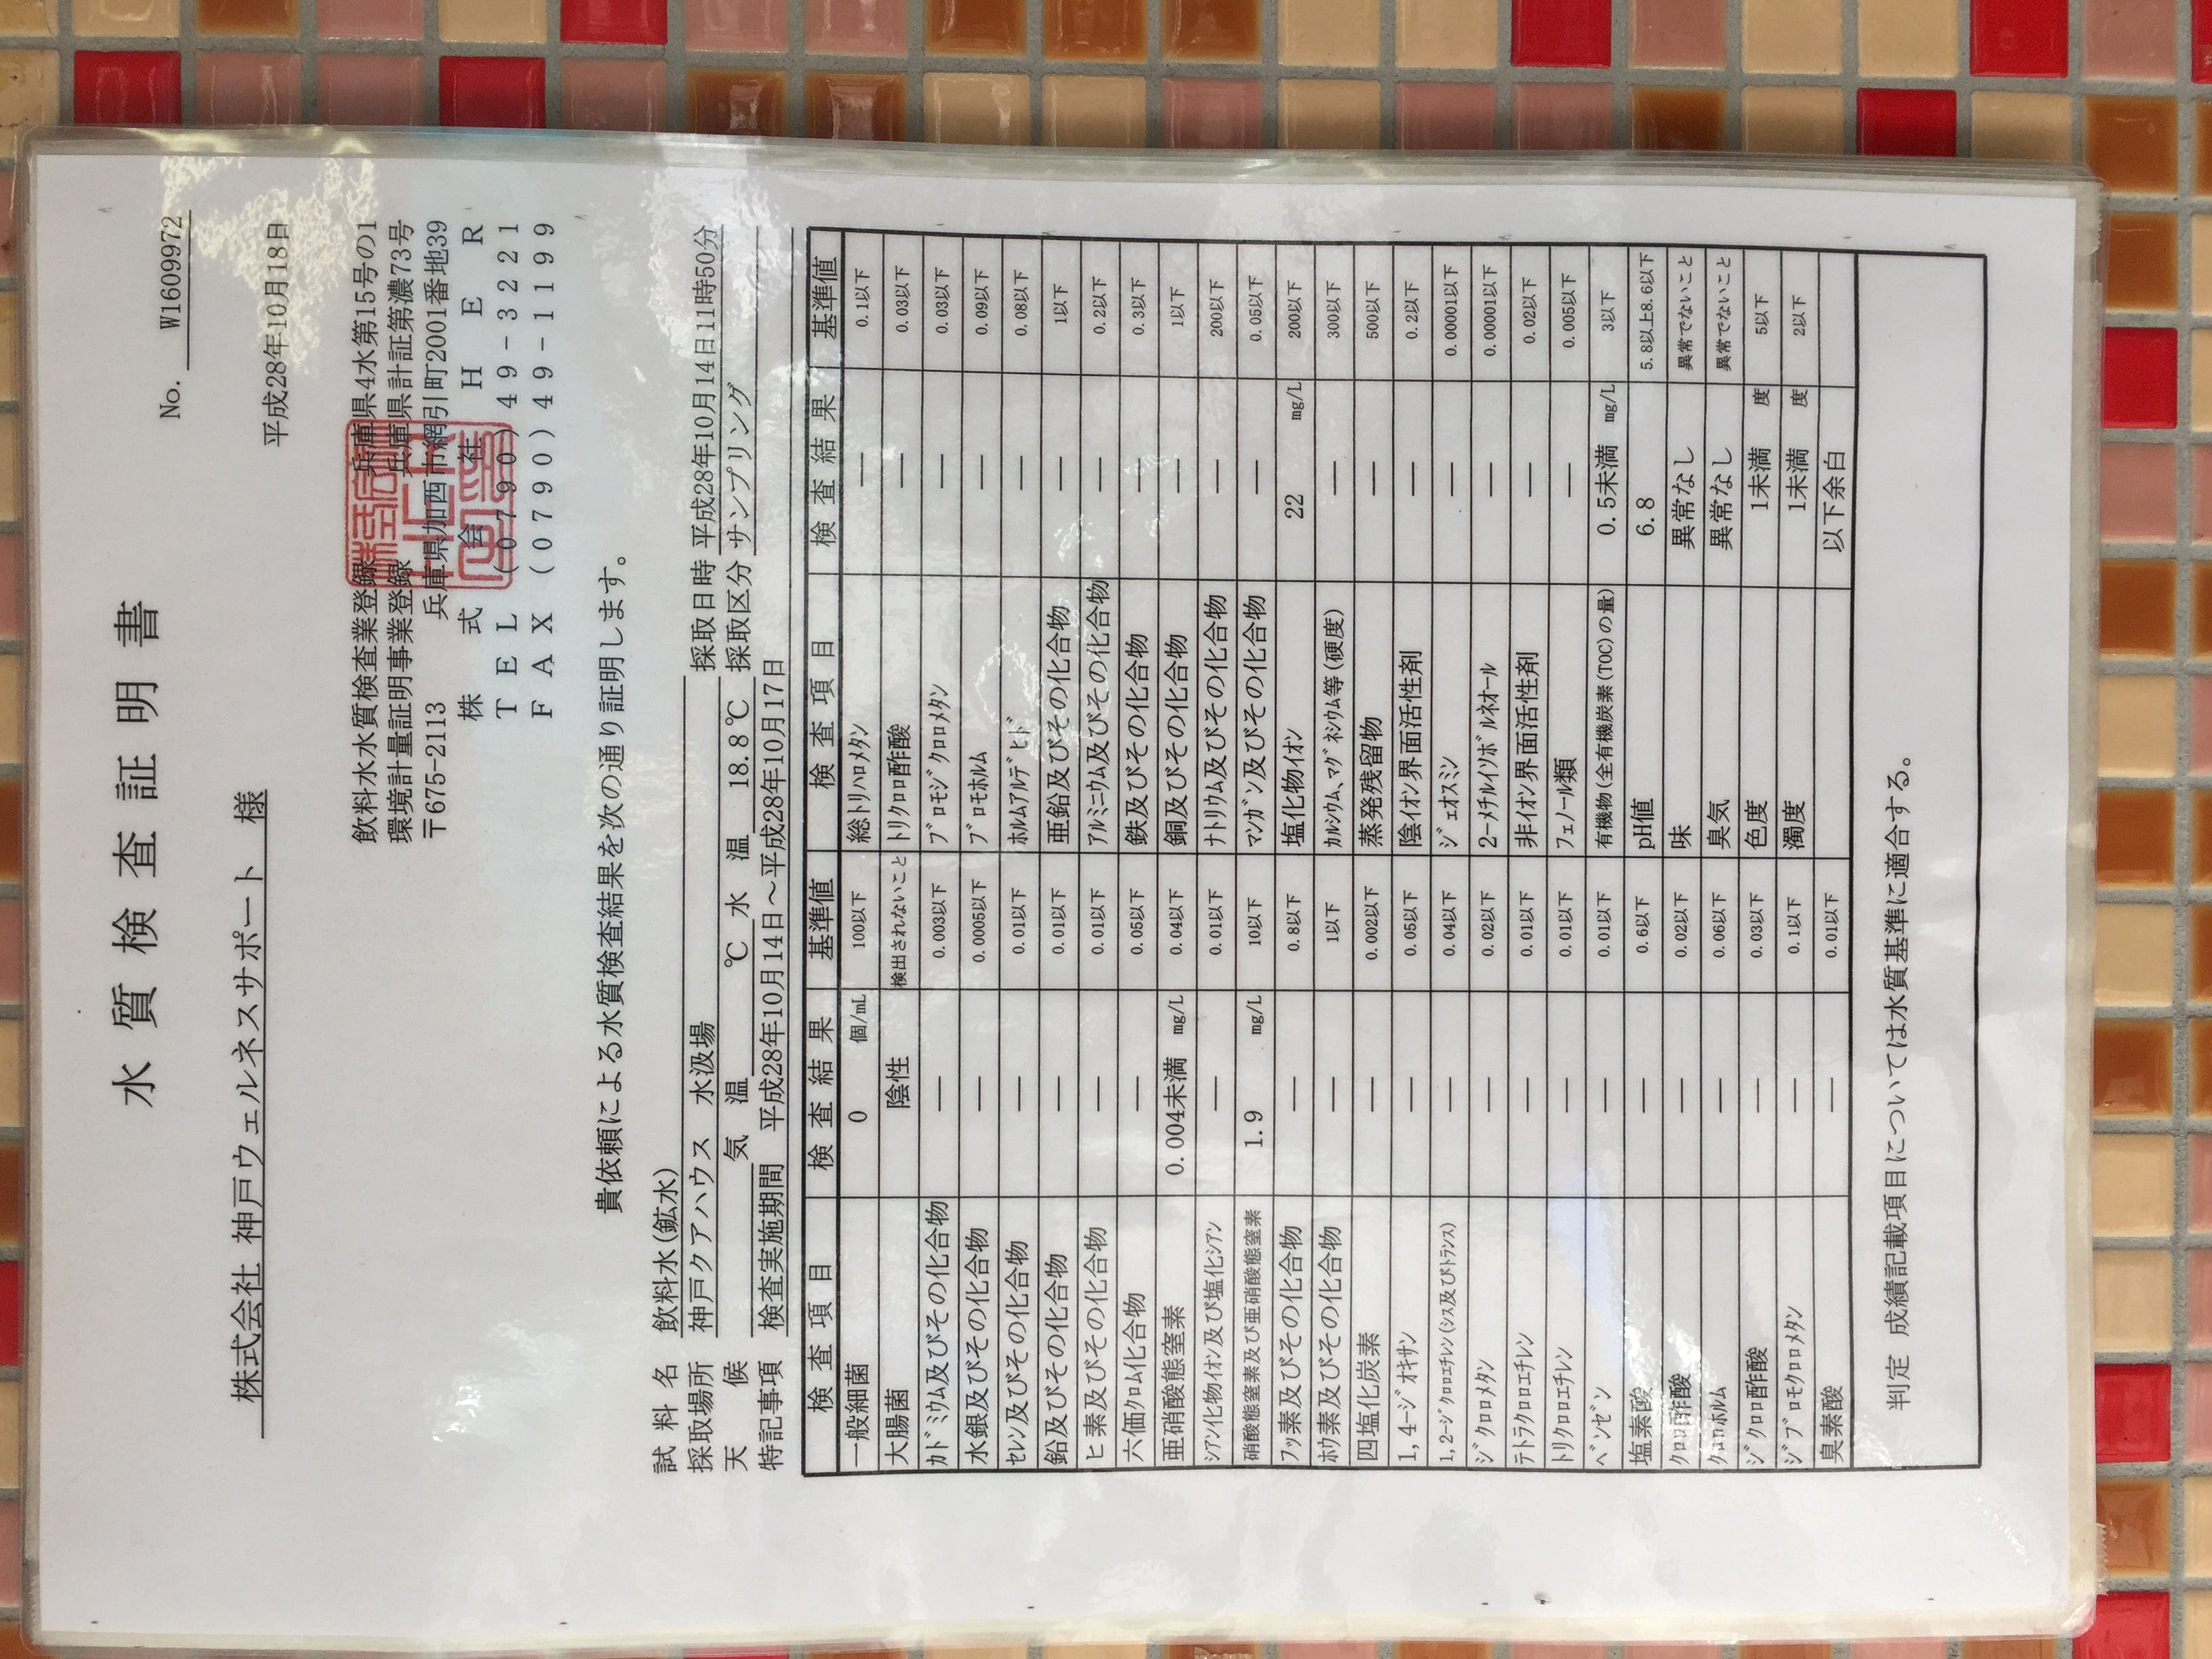 水質検査証明書
No. W1609972
株式会社 神戸ウェルネスサポート 様
平成28年10月18日
飲料水水質検査業登録 兵庫県4水第15号の1
環境計量証明事業登録 兵庫県計証第濃73号
〒675-2113 兵庫県加西市網引町2001番地39
株式会社 HER
TEL (0790) 49-3221
FAX (0790) 49-1199
貴依頼による水質検査結果を次の通り証明します。
試料名 飲料水(鉱水)
採取場所 神戸クアハウス 水汲場 採取日時 平成28年10月14日11時50分
天候 気温 ℃ 水温 18.8℃ 採取区分 サンプリング
特記事項 検査実施期間 平成28年10月14日～平成28年10月17日
検査項目 検査結果 基準値 検査項目 検査結果 基準値
一般細菌 0 個/mL 100以下 総トリハロメタン ― 0.1以下
大腸菌 陰性 検出されないこと トリクロロ酢酸 ― 0.03以下
カドミウム及びその化合物 ― 0.003以下 ブロモジクロロメタン ― 0.03以下
水銀及びその化合物 ― 0.0005以下 ブロモホルム ― 0.09以下
セレン及びその化合物 ― 0.01以下 ホルムアルデヒド ― 0.08以下
鉛及びその化合物 ― 0.01以下 亜鉛及びその化合物 ― 1以下
ヒ素及びその化合物 ― 0.01以下 アルミニウム及びその化合物 ― 0.2以下
六価クロム化合物 ― 0.05以下 鉄及びその化合物 ― 0.3以下
亜硝酸態窒素 0.004未満 mg/L 0.04以下 銅及びその化合物 ― 1以下
シアン化物イオン及び塩化シアン ― 0.01以下 ナトリウム及びその化合物 ― 200以下
硝酸態窒素及び亜硝酸態窒素 1.9 mg/L 10以下 マンガン及びその化合物 ― 0.05以下
フッ素及びその化合物 ― 0.8以下 塩化物イオン 22 mg/L 200以下
ホウ素及びその化合物 ― 1以下 カルシウム、マグネシウム等(硬度) ― 300以下
四塩化炭素 ― 0.002以下 蒸発残留物 ― 500以下
1,4-ジオキサン ― 0.05以下 陰イオン界面活性剤 ― 0.2以下
1,2-ジクロロエチレン(シス及びトランス) ― 0.04以下 ジェオスミン ― 0.00001以下
ジクロロメタン ― 0.02以下 2-メチルイソボルネオール ― 0.00001以下
テトラクロロエチレン ― 0.01以下 非イオン界面活性剤 ― 0.02以下
トリクロロエチレン ― 0.01以下 フェノール類 ― 0.005以下
ベンゼン ― 0.01以下 有機物(全有機炭素(TOC)の量) 0.5未満 mg/L 3以下
塩素酸 ― 0.6以下 pH値 6.8 5.8以上8.6以下
クロロ酢酸 ― 0.02以下 味 異常なし 異常でないこと
クロロホルム ― 0.06以下 臭気 異常なし 異常でないこと
ジクロロ酢酸 ― 0.03以下 色度 1未満 度 5以下
ジブロモクロロメタン ― 0.1以下 濁度 1未満 度 2以下
臭素酸 ― 0.01以下 以下余白
判定 成績記載項目については水質基準に適合する。